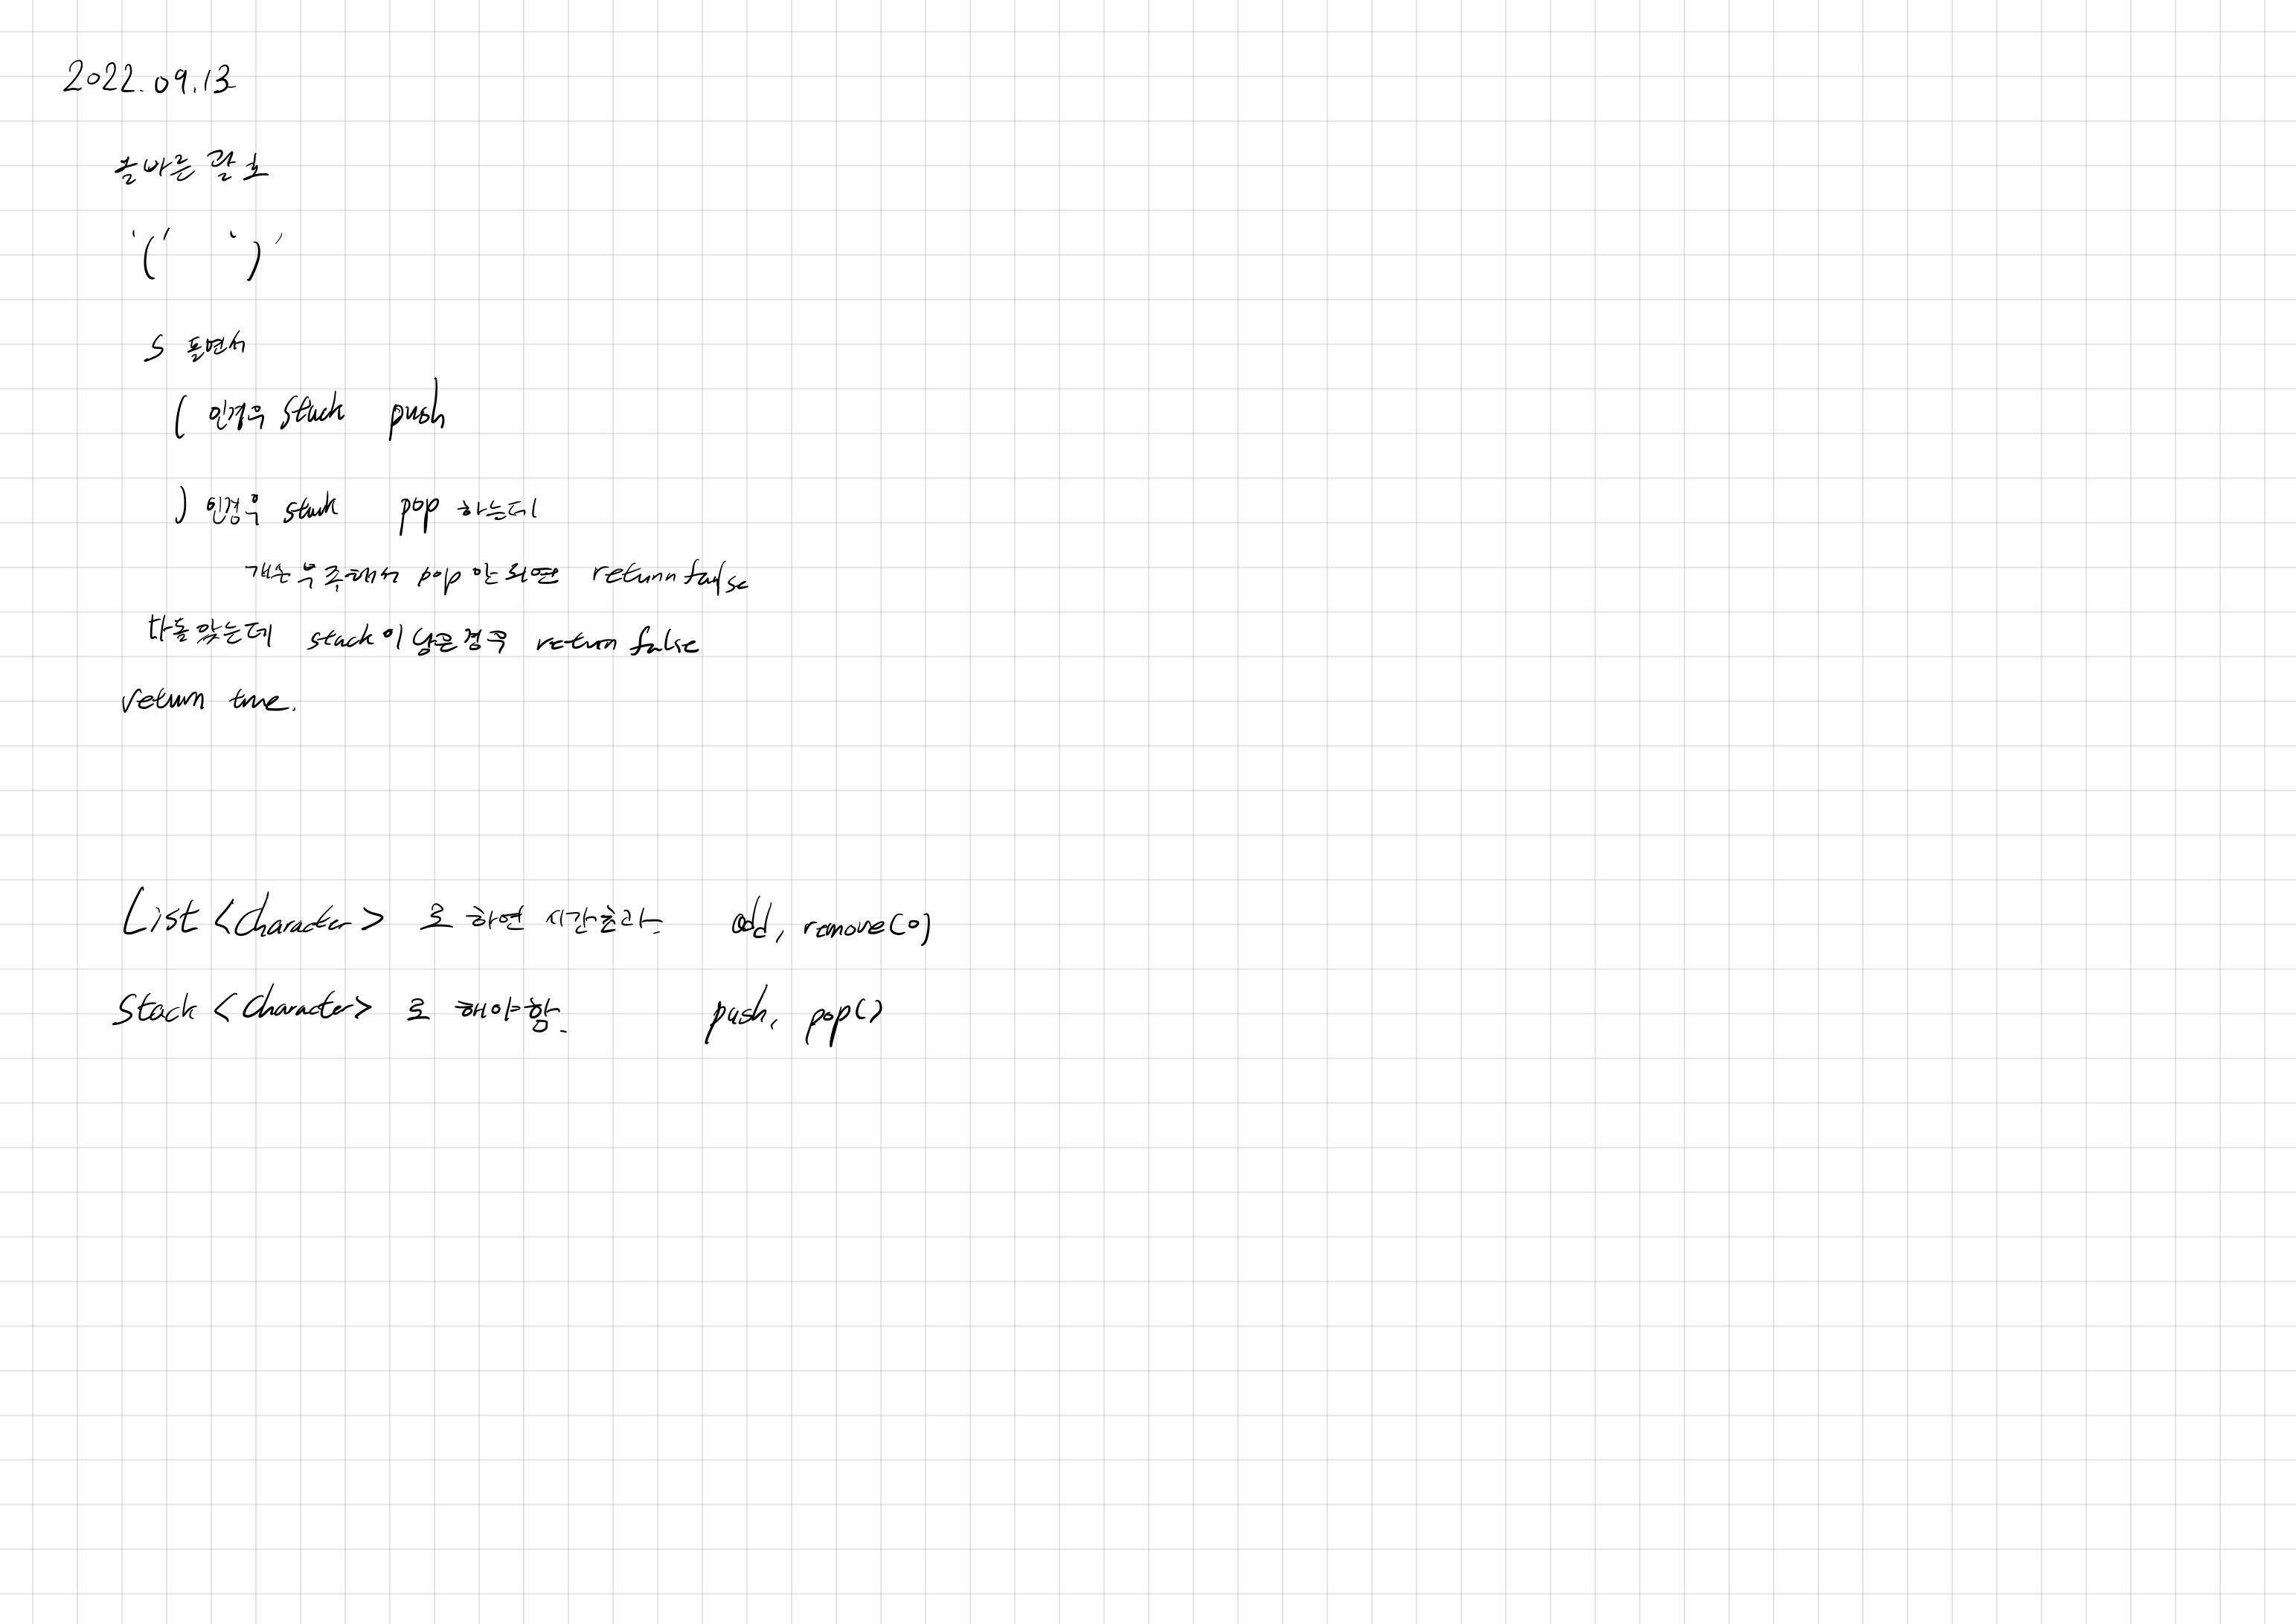 2022.09.13
올바른 괄호
'(' ')'
S 돌면서
( 인경우 Stack push
) 인경우 stack pop 하는데
개수 부족해서 pop 안되면 return false
다 돌았는데 stack이 남은경우 return false
return true.
List <Character> 로 하면 시간초과. add, remove(0)
Stack <Character> 로 해야함. push, pop()